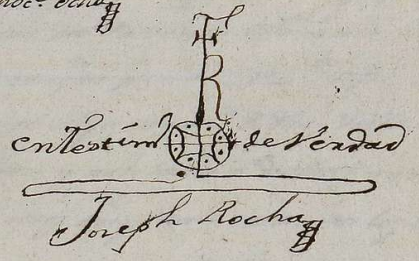 enTestim.º de Verdad
Joseph Rocha